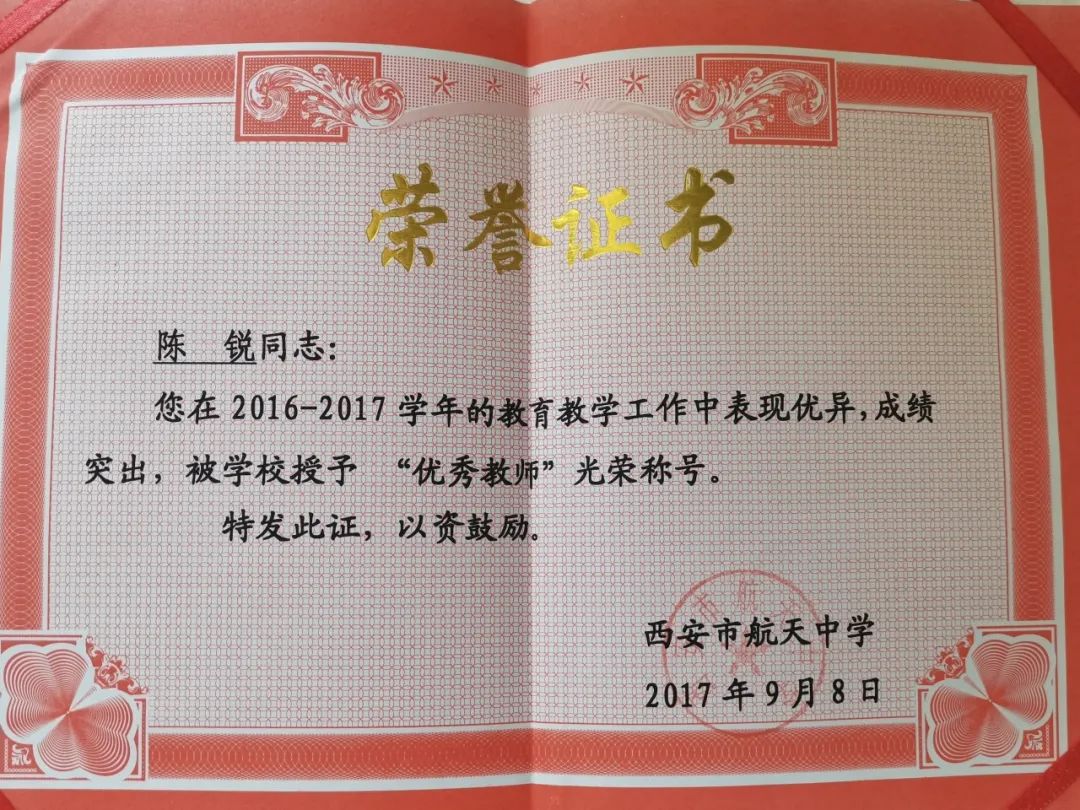 荣誉证书
陈 锐同志：
您在 2016-2017 学年的教育教学工作中表现优异，成绩
突出，被学校授予 “优秀教师”光荣称号。
特发此证，以资鼓励。
西安市航天中学
2017 年 9 月 8 日